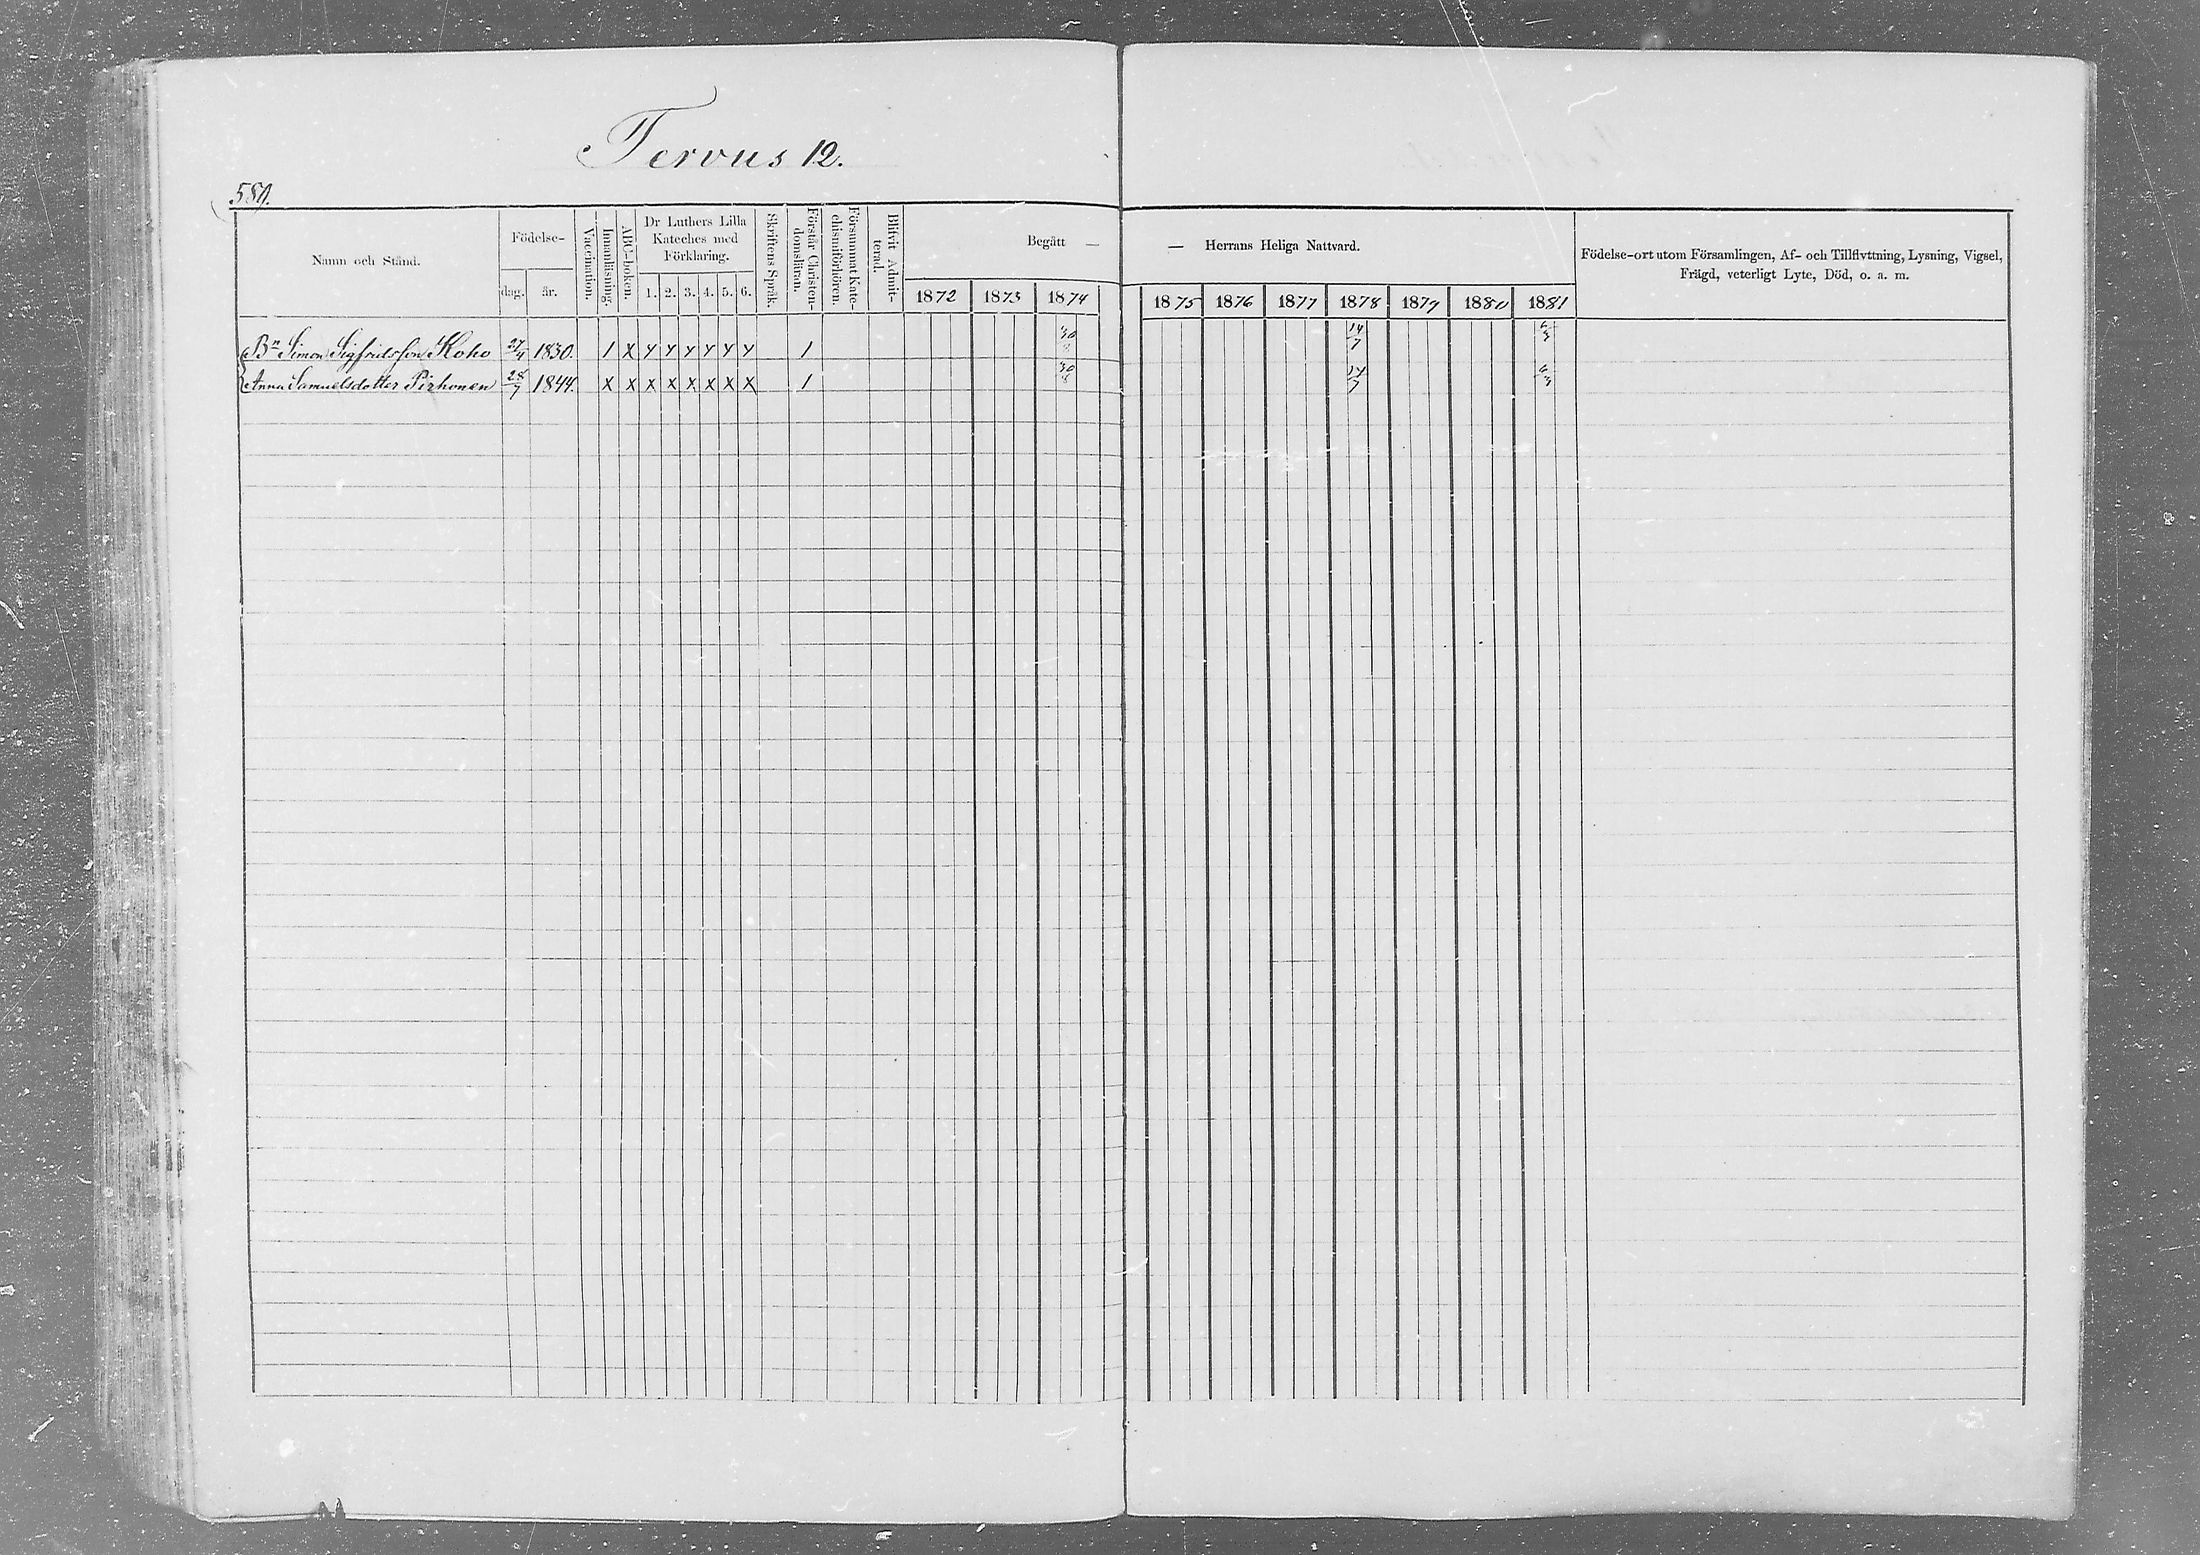 Tervus 12.
589.
Namn och Stånd. Födelse- dag. år. Vaccination. Innanläsning. ABC-boken. Dr Luthers Lilla Kateches med Förklaring. 1. 2. 3. 4. 5. 6. Skriftens Språk. Förstår Christendomsläran. Försummat Katechismiförhören. Blifvit Admitterad. Begått — — Herrans Heliga Nattvard. Födelse-ort utom Församlingen, Af- och Tillflyttning, Lysning, Vigsel, Frägd, veterligt Lyte, Död, o. a. m.
1872 1873 1874 1875 1876 1877 1878 1879 1880 1881
Bn Simon Sigfridsson Koho 27/4 1830. 1 X Y Y Y Y Y Y 1 30/8 14/7
Anna Samuelsdotter Pirhonen 28/7 1844. X X X X X X X X 1 30/8 14/7